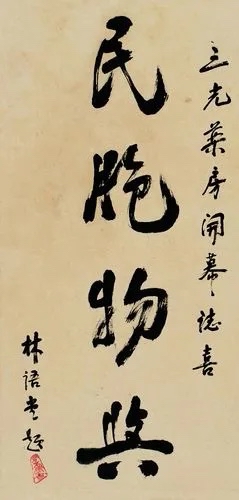 三光药房開幕誌喜
民胞物與
林語堂題